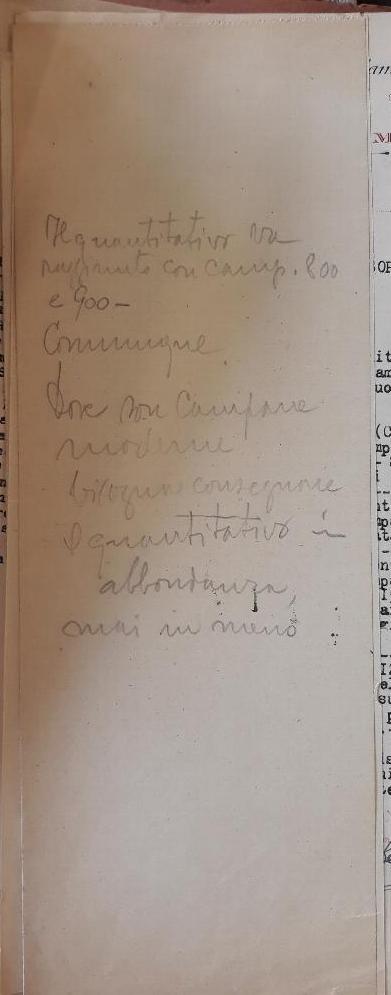 Il quantitativo va
raggiunto con camp. 800
e 900 -
Comunque
Dove son Campane
moderne
bisogna consegnare
Il quantitativo in
abbondanza,
mai in meno